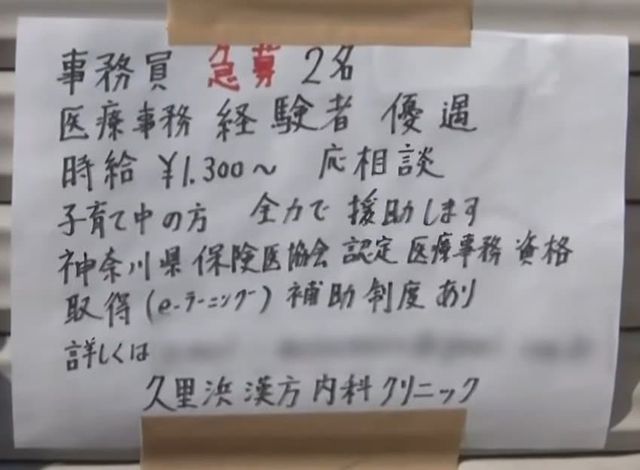 事務員 急募 2名
医療事務 経験者 優遇
時給 ¥1.300〜 応相談
子育て中の方 全力で 援助します
神奈川県 保険医協会 認定 医療事務 資格
取得 (e-ラーニング) 補助 制度 あり
詳しくは
久里浜 漢方 内科 クリニック